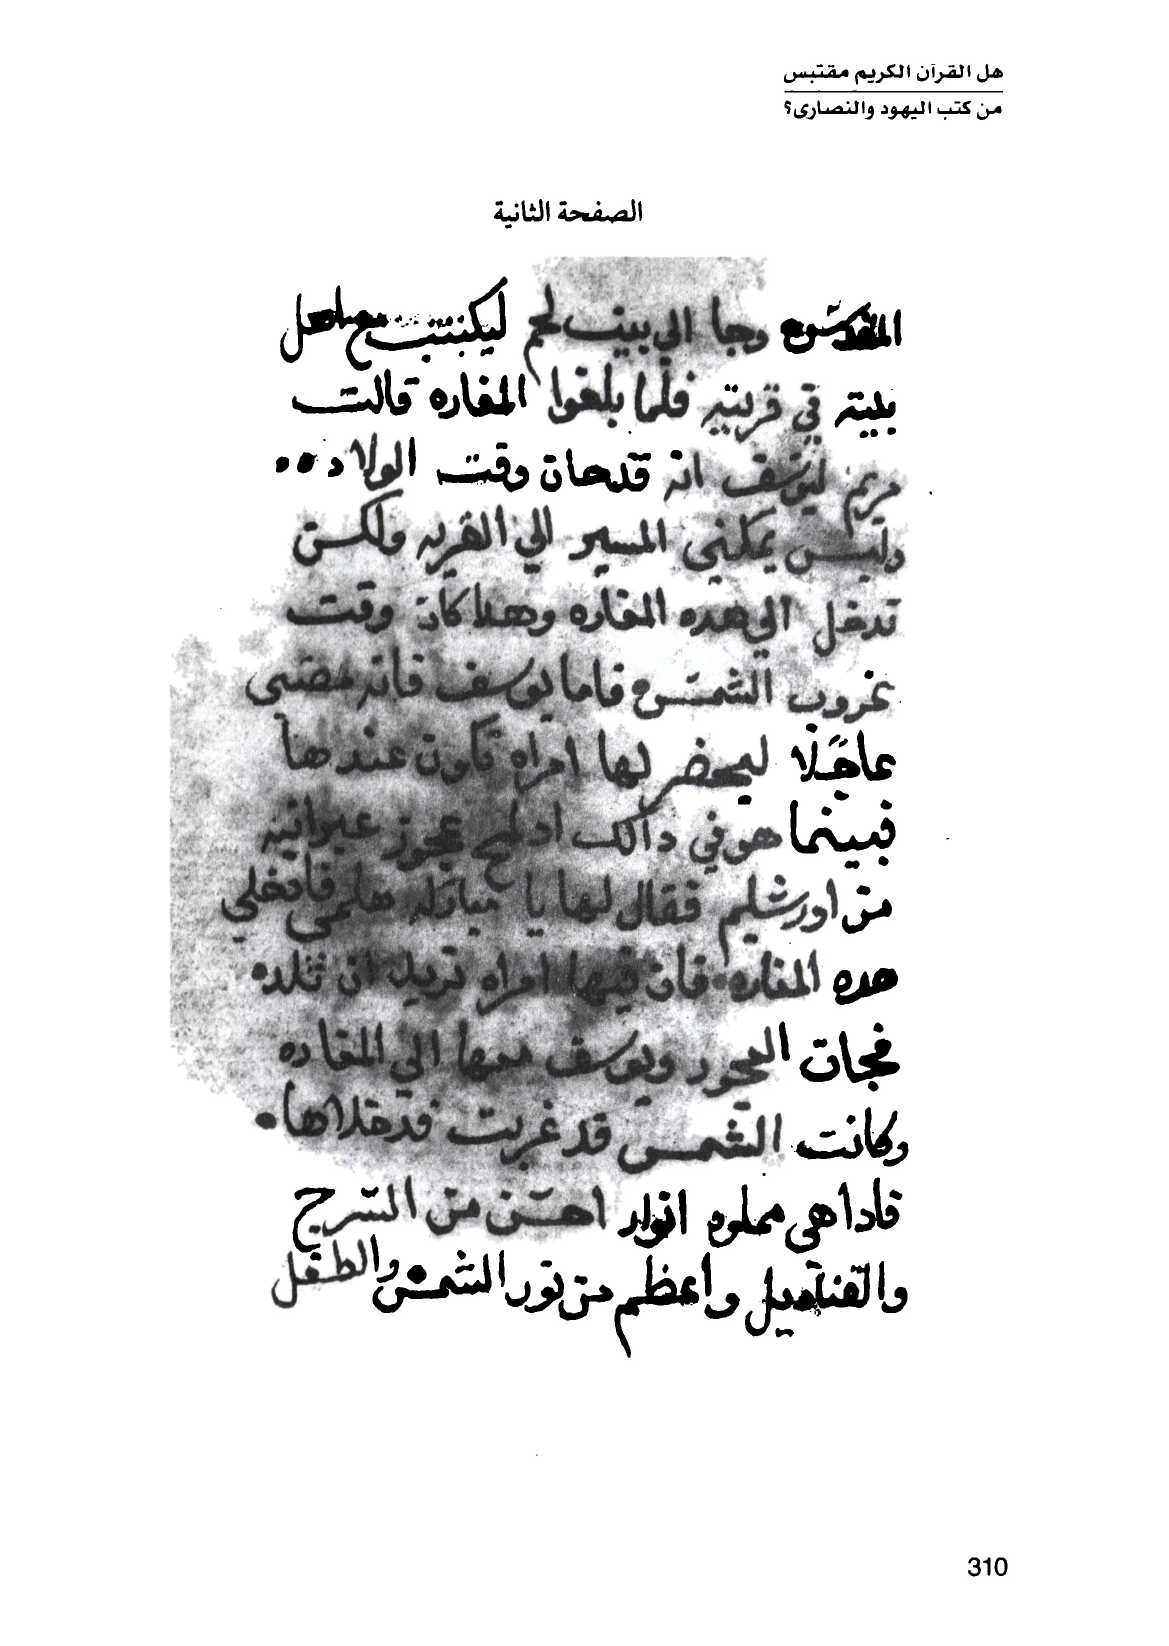 هل القرآن الكريم مقتبس
من كتب اليهود والنصارى؟
الصفحة الثانية
المقدس وجا الي بيت لحم ليكتتب مع اهل
بيته في قريته فلما بلغوا المغاره قالت
مريم ليوسف انه قدحان وقت الولاده
وليس يمكنني المسير الي القريه ولكن
ندخل الي هده المغاره وهدا كان وقت
غروب الشمس فاما يوسف فانه مضى
عاجلا ليحضر لها امراه تكون عندها
فبينما هو في دالك اد لمح عجوز عبرانيه
من اورشليم فقال لها يا مباركه هلمي فادخلي
هده المغاره فان فيها امراه تريد ان تلد
فجات العجوز ويوسف معها الى المغاره
وكانت الشمس قد غربت فدخلاها
فادا هي مملوه انوار احسن من السرج
والقناديل واعظم من نور الشمس والطفل
310